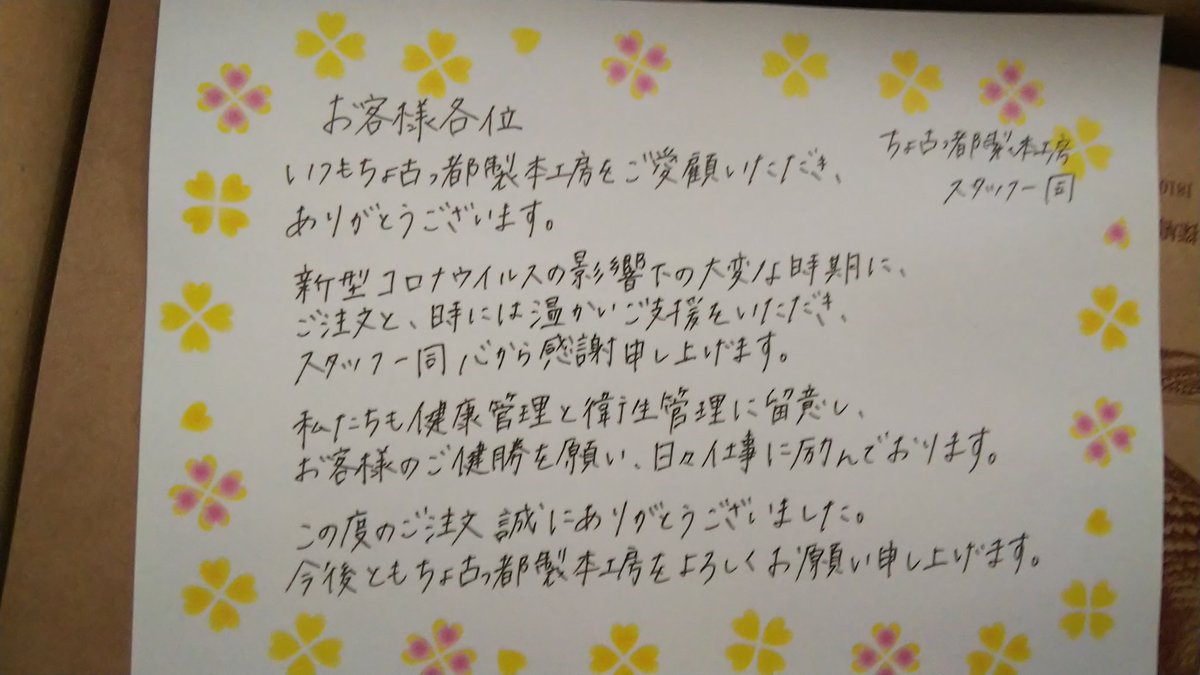 お客様各位
ちょ古っ都製本工房
スタッフ一同
いつもちょ古っ都製本工房をご愛顧いただき、
ありがとうございます。
新型コロナウイルスの影響下の大変な時期に、
ご注文と、時には温かいご支援をいただき、
スタッフ一同心から感謝申し上げます。
私たちも健康管理と衛生管理に留意し、
お客様のご健勝を願い、日々仕事に励んでおります。
この度のご注文 誠にありがとうございました。
今後ともちょ古っ都製本工房をよろしくお願い申し上げます。